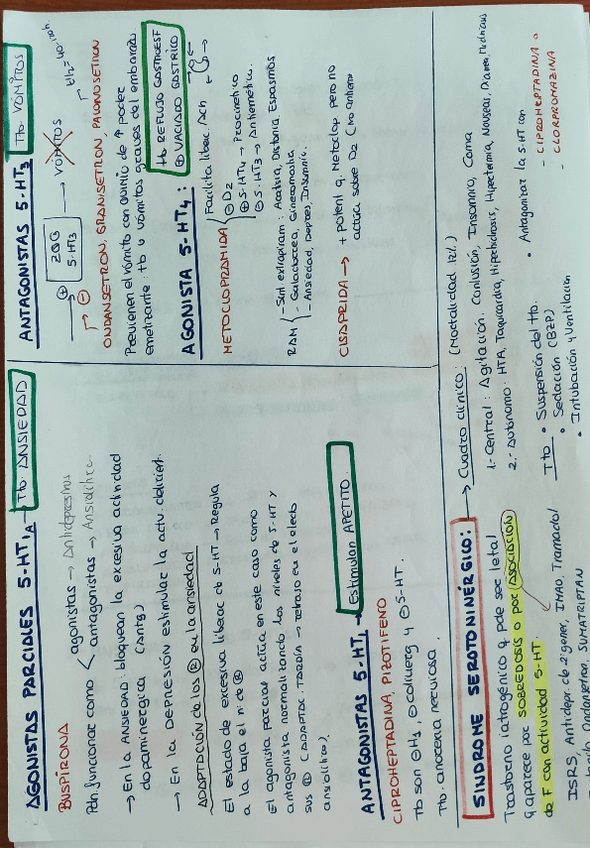 AGONISTAS PARCIALES 5-HT1A → Tto. ANSIEDAD
BUSPIRONA
Pdn. funcionar como < agonistas → Antidepresivos
antagonistas → Ansiolítico
→ En la ANSIEDAD: bloquean la excesiva actividad
dopaminergica (Antg)
→ En la DEPRESIÓN estimular la activ. deficient.
ADAPTACIÓN de los Ⓡ en la ansiedad
El estado de excesiva liberac de 5-HT → Regula
a la baja el nº de Ⓡ
El agonista parcial actúa en este caso como
antagonista normalizando los niveles de 5-HT y
sus Ⓡ (ADAPTAC. TARDÍA → retraso en el efecto
ansiolítico).
ANTAGONISTAS 5-HT1 → Estimulan APETITO.
CIPROHEPTADINA, PIZOTIFENO
Tb son ⊖H1, ⊖colinerg y ⊖5-HT.
Tto. anorexia nerviosa.
ANTAGONISTAS 5-HT3 Tto VÓMITOS
⊕ ZQG 5-HT3 → VÓMITOS
⊖
ONDANSETRON, GRANISETRON, PALONOSETRON
→ t½ = 40h
Previenen el vómito con QUIMIO de ↑ poder
emetizante: tto y vómitos graves del embarazo
AGONISTA 5-HT4: Tto REFLUJO GASTROESF
⊕ VACIADO GÁSTRICO
METOCLOPRAMIDA { Facilita liberac. Ach
⊖ D2
⊕ 5-HT4 → Procinético
⊖ 5-HT3 → Antiemético.
RAM { - Snt extrapiram: Acatisia, Distonia, Espasmos
- Galactorrea, Ginecomastia
- Ansiedad, Depres, Insomnio.
CISAPRIDA → + potent q. Metoclop pero no
actúa sobre D2 (no antiem
SINDROME SEROTONINÉRGICO:
Trastorno iatrogénico q pde ser letal
q aparece por SOBREDOSIS o por ASOCIACIÓN
de F con actividad 5-HT.
ISRS, Antidepr. de 2ª gener, IMAO, Tramadol
Ondansetron, SUMATRIPTAN
→ Cuadro clínico: (Mortalidad 12%)
1.- Central: Agitación, Confusión, Insomnio, Coma
2.- Autónomo: HTA, Taquicardia, Hiperhidrosis, Hipertermia, Nauseas, Diarrea, Midriasis
Tto • Suspensión del tto.
• Sedación (BZP)
• Intubación y Ventilación
• Antagonizar la 5-HT con
- CIPROHEPTADINA o
- CLORPROMAZINA